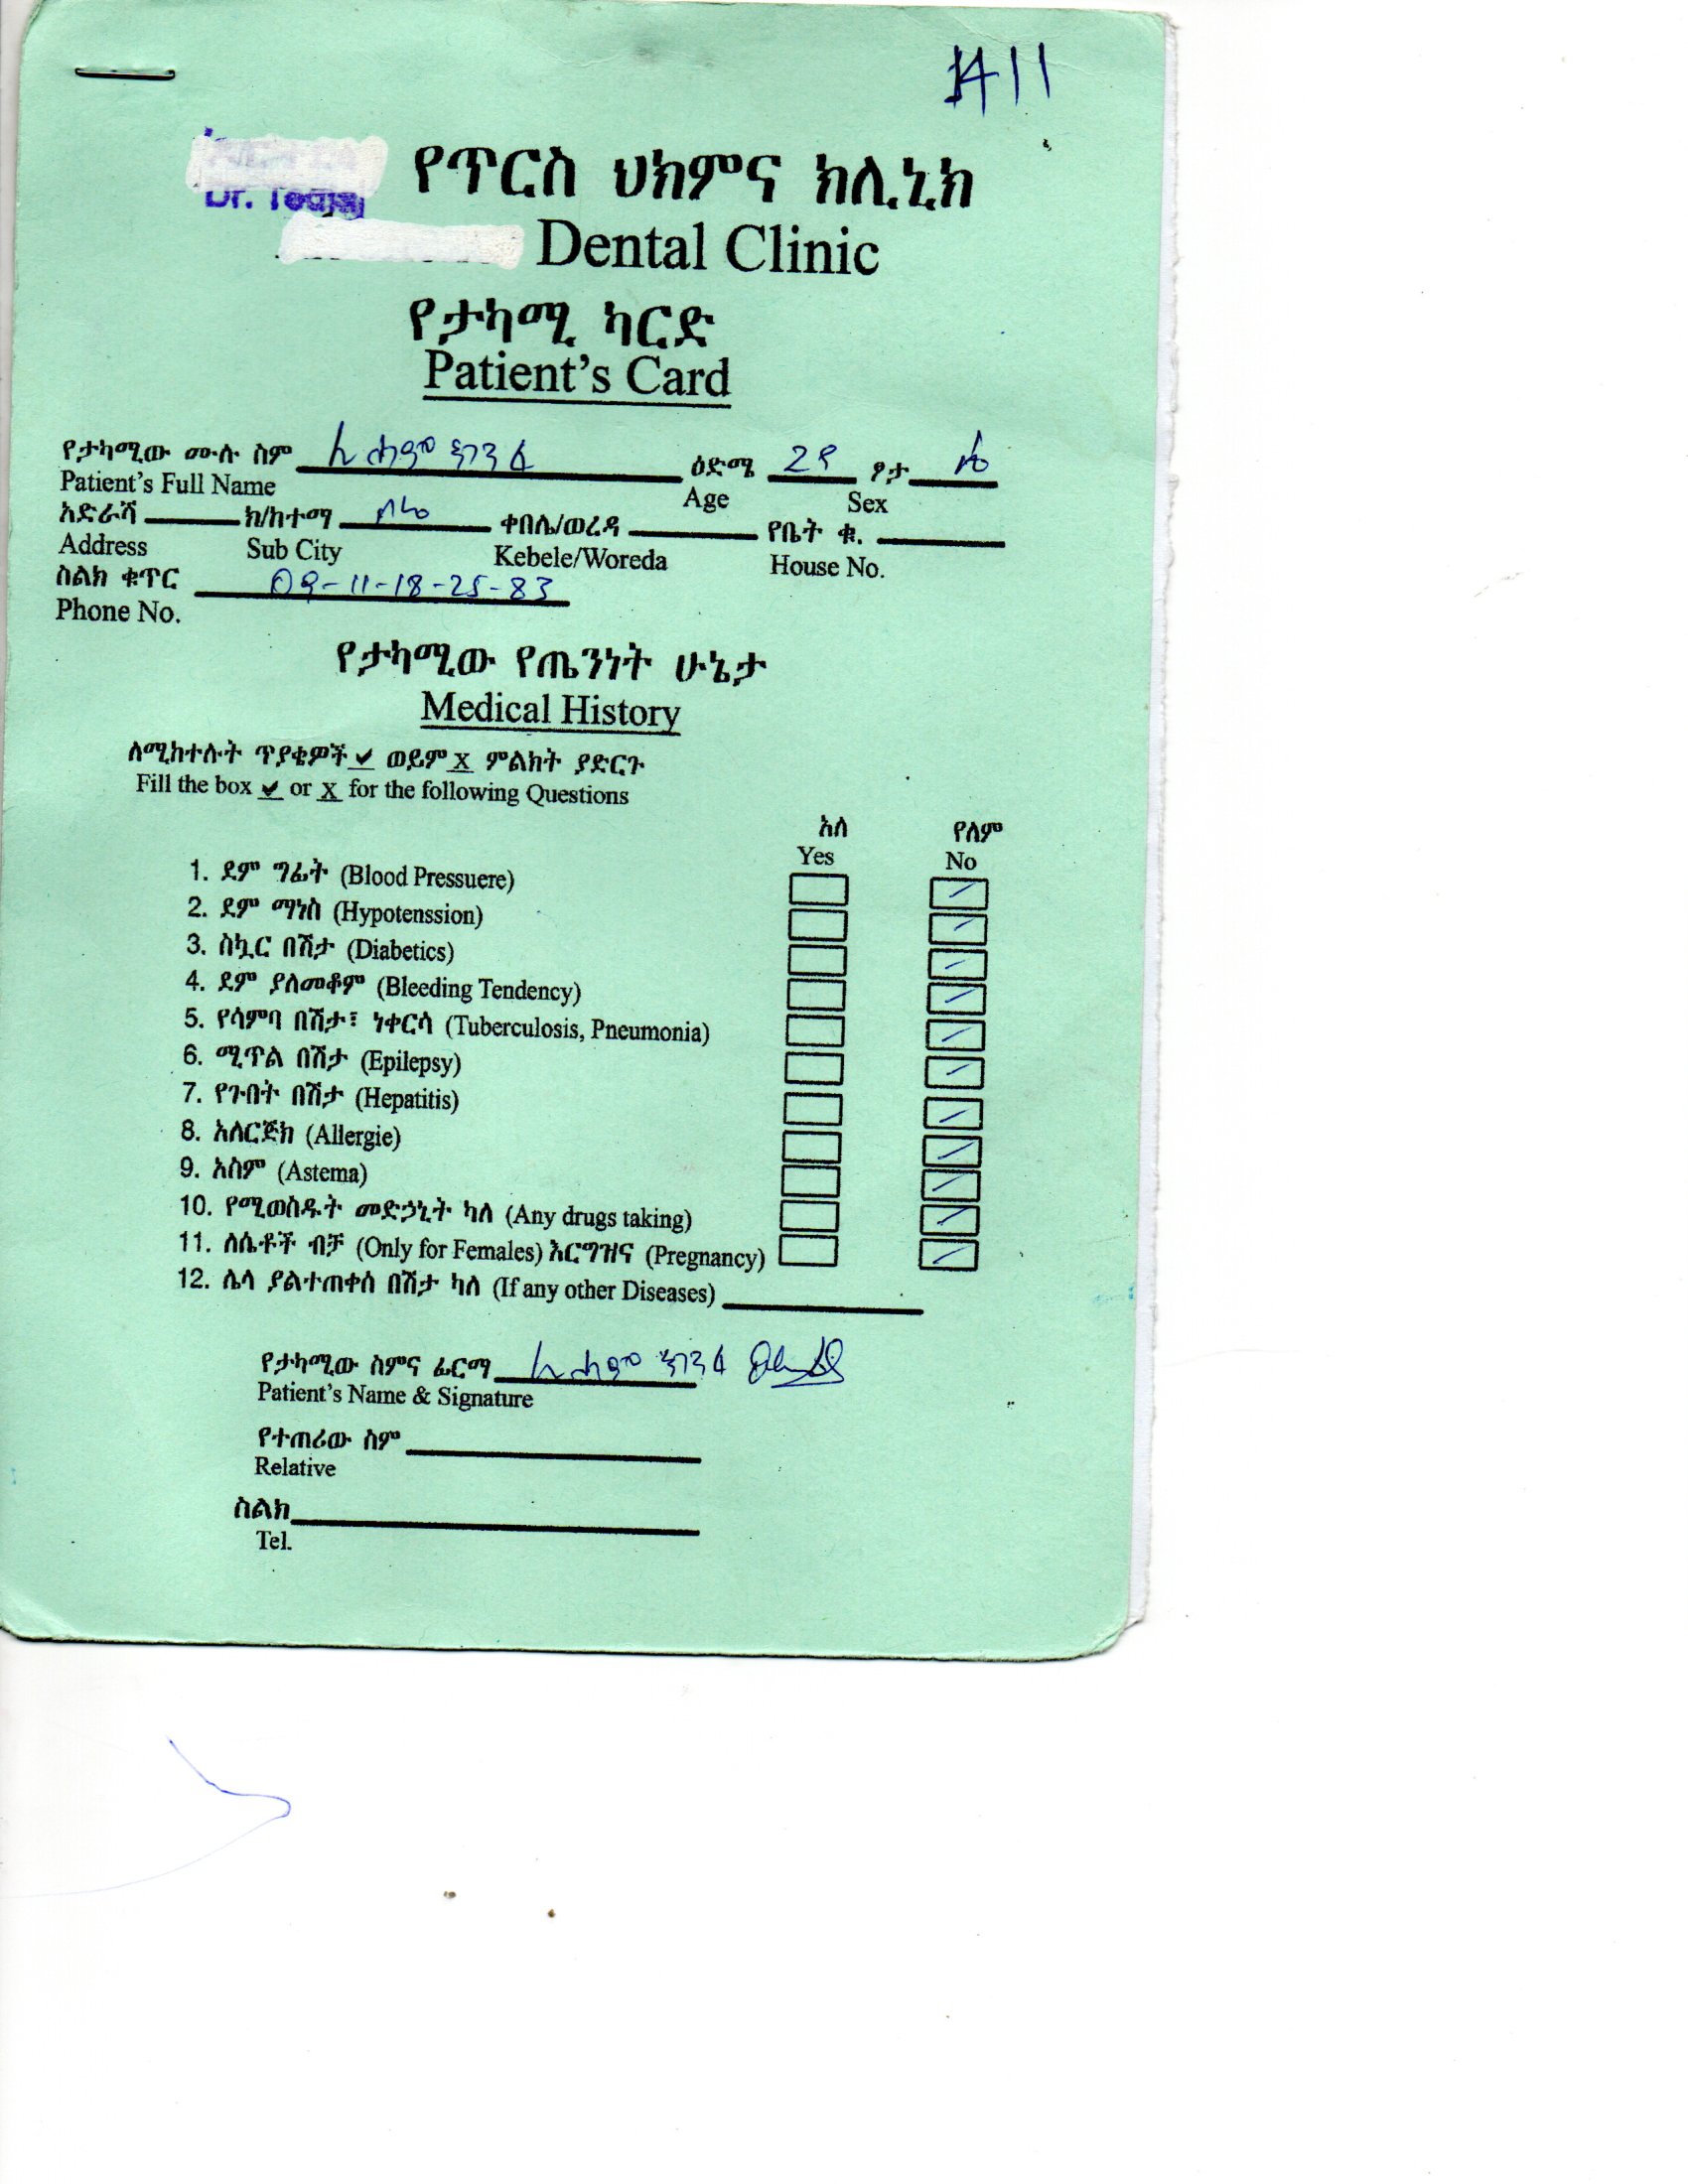 1411
የጥርስ ህክምና ክሊኒክ
Dr.
Dental Clinic
የታካሚ ካርድ
Patient's Card
የታካሚው ሙሉ ስም ዕድሜ 29 ፆታ ሴ
Patient's Full Name Age Sex
አድራሻ ክ/ከተማ ቦሌ ቀበሌ/ወረዳ የቤት ቁ.
Address Sub City Kebele/Woreda House No.
ስልክ ቁጥር 09-11-18-25-83
Phone No.
የታካሚው የጤንነት ሁኔታ
Medical History
ለሚከተሉት ጥያቄዎች ✔ ወይም X ምልክት ያድርጉ
Fill the box ✔ or X for the following Questions
አለ የለም
Yes No
1. ደም ግፊት (Blood Pressuere)
2. ደም ማነስ (Hypotenssion)
3. ስኳር በሽታ (Diabetics)
4. ደም ያለመቆም (Bleeding Tendency)
5. የሳምባ በሽታ፣ ነቀርሳ (Tuberculosis, Pneumonia)
6. ሚጥል በሽታ (Epilepsy)
7. የጉበት በሽታ (Hepatitis)
8. አለርጅክ (Allergie)
9. አስም (Astema)
10. የሚወስዱት መድኃኒት ካለ (Any drugs taking)
11. ለሴቶች ብቻ (Only for Females) እርግዝና (Pregnancy)
12. ሌላ ያልተጠቀሰ በሽታ ካለ (If any other Diseases)
የታካሚው ስምና ፊርማ
Patient's Name & Signature
የተጠሪው ስም
Relative
ስልክ
Tel.